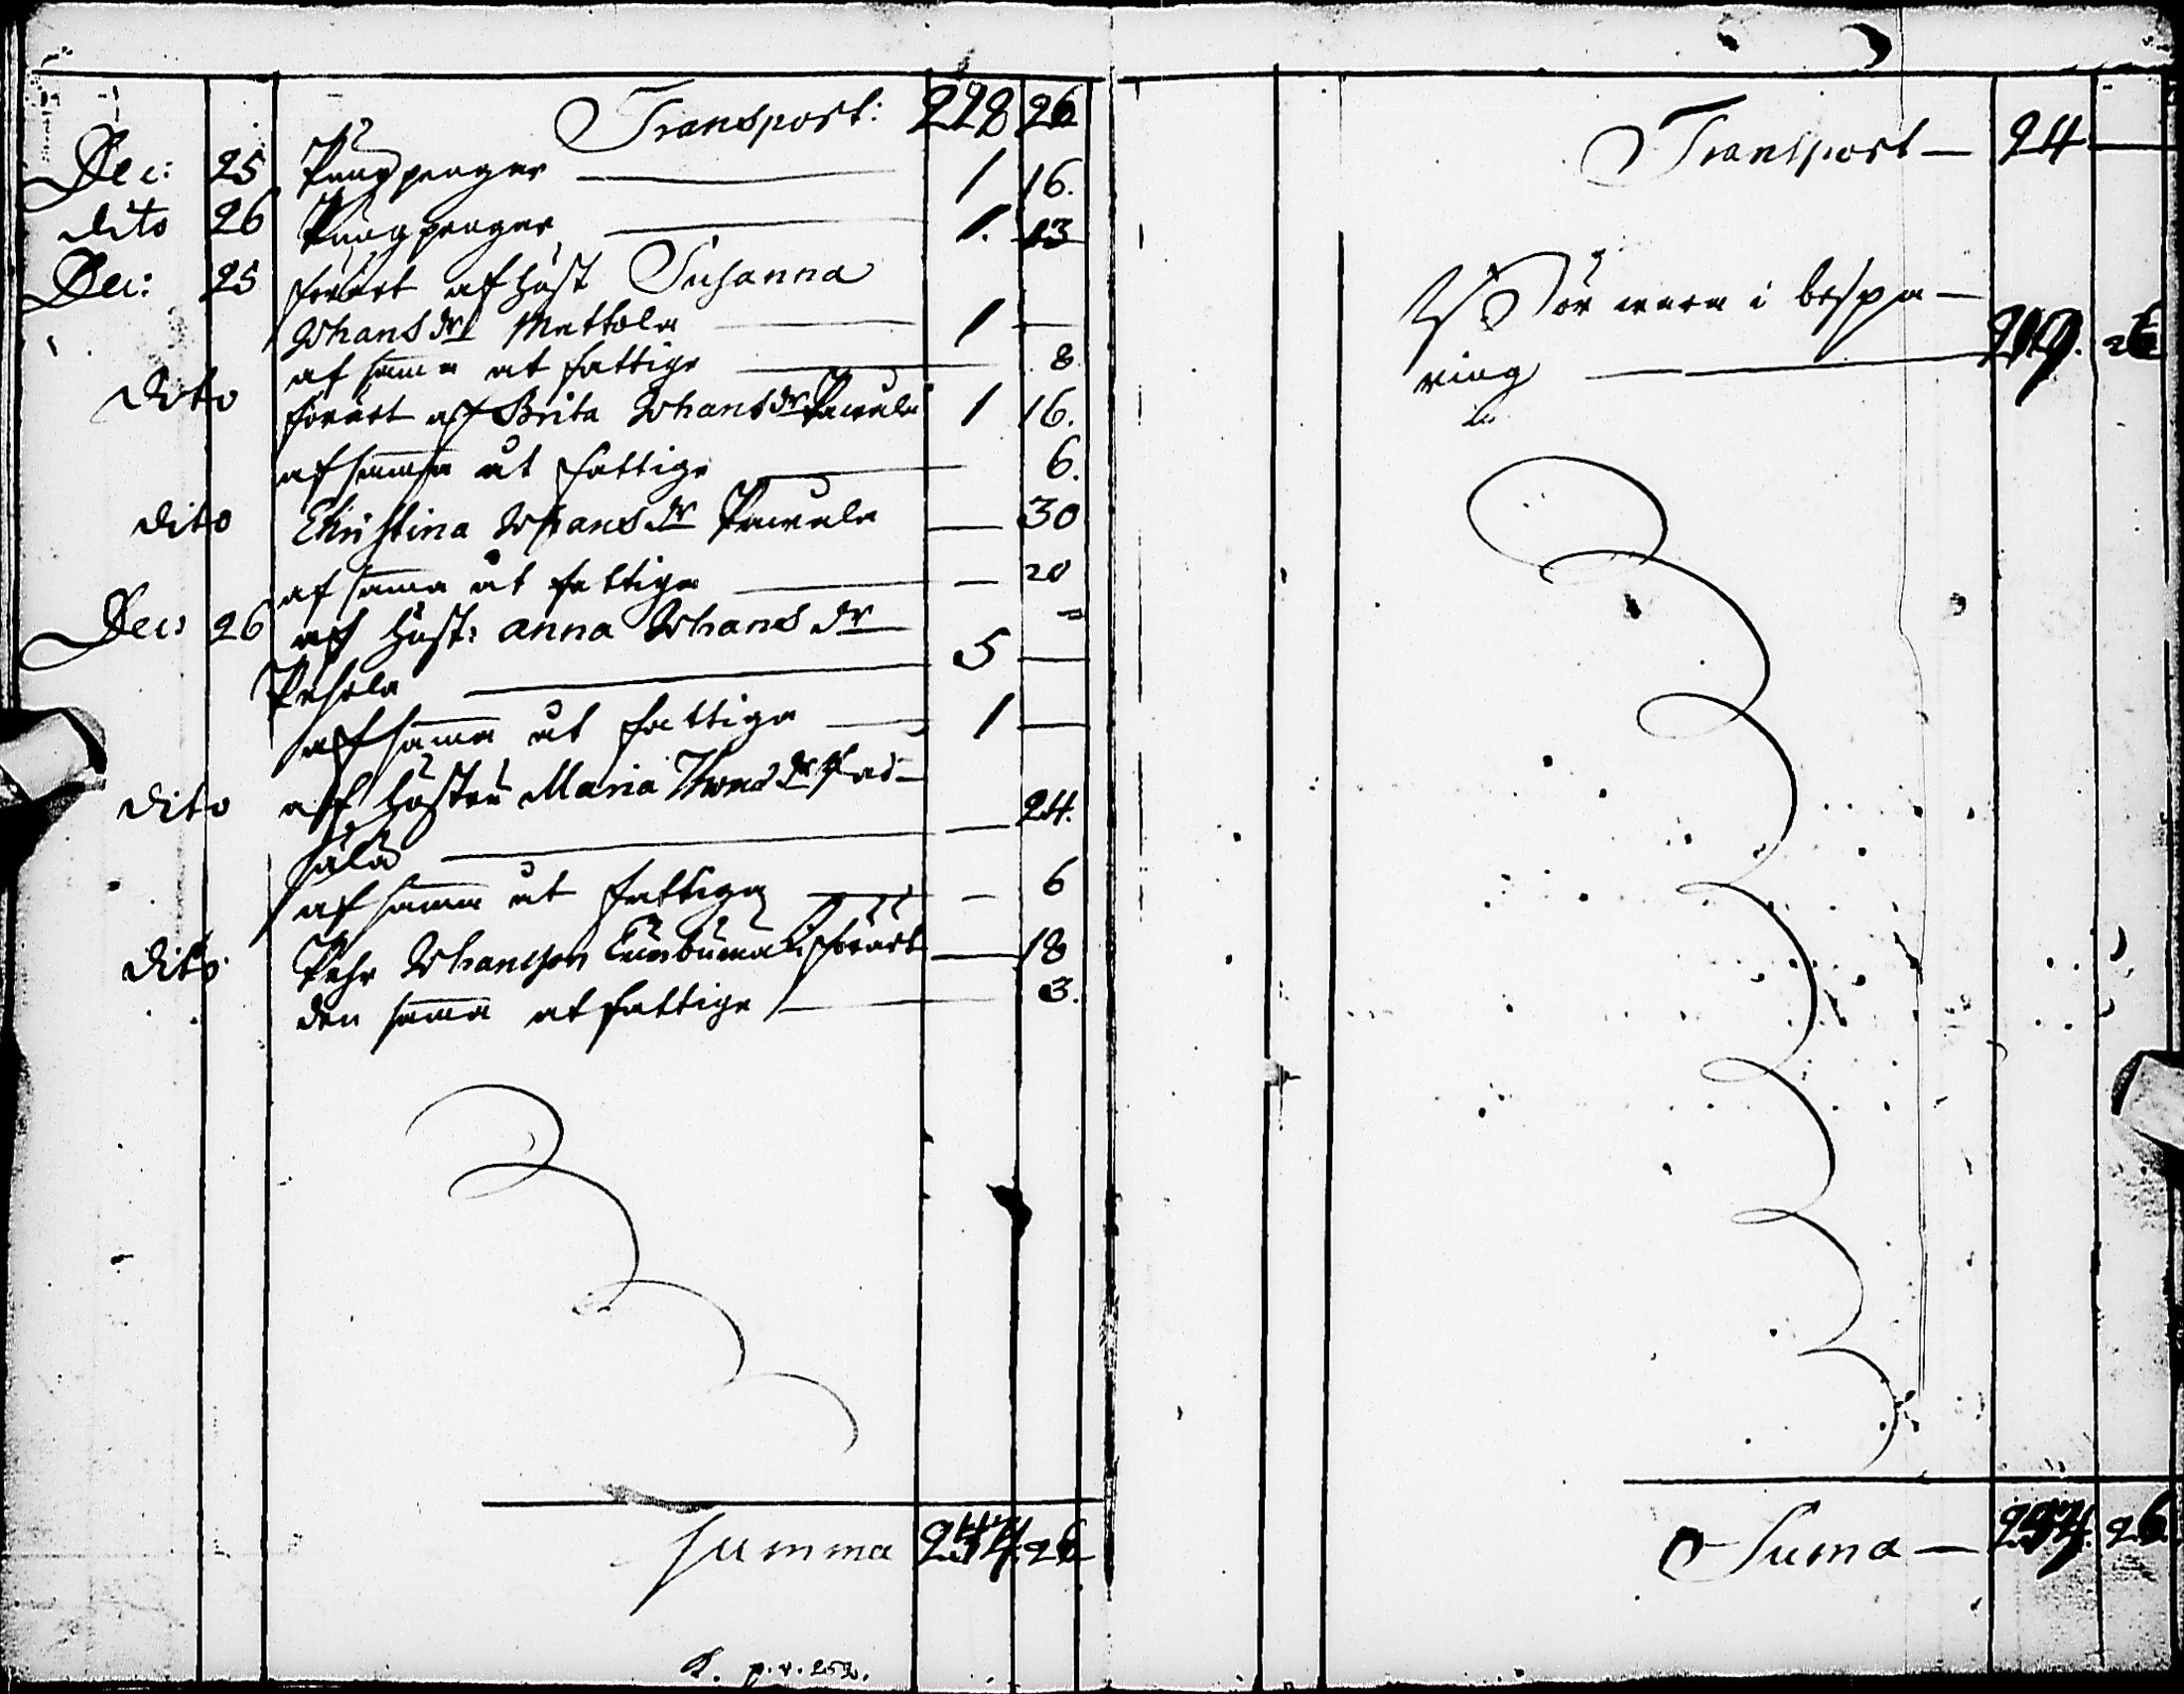 Transport: 228 26
Dec: 25 Pungpengar 1 16.
dito 26 Pungpengar 1. 13
Dec: 25 förärt af Hust Susanna
Johansdr Mattola 1
af sama åt fattige 8
dito förärt aff Brita Johansdr Pavvala 1 16.
af samma åt fattige 6.
dito Christina Johansdr Pavvala 30
af sama åt fattiga 20
Dec: 26 aff Hust: anna Johansdr
Pehola 5
aff sama åt fattiga 1
dito aff Hustru Maria Thomasdr
sala 24.
af sama åt fattiga 6
dito Pehr Johansson förärt 18
den sama åt fattige 3.
summa 26
p. v. 252.
Transport 24
wara i bespa-
ring 26
Suma 26